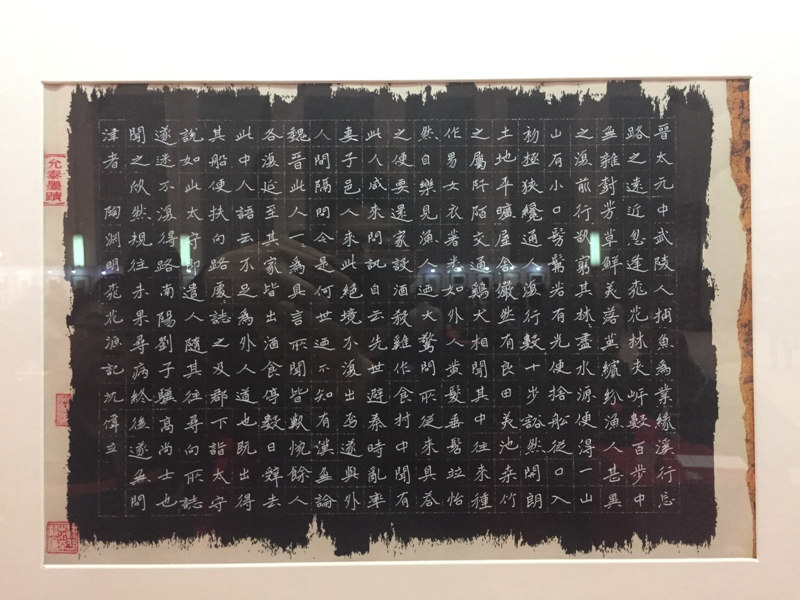 晉太元中武陵人捕魚為業緣溪行忘
路之遠近忽逢桃花林夾岸數百步中
無雜對芳草鮮美落英繽紛漁人甚異
之復前行欲窮其林盡水源便得一山
山有小口髣髴若有光便捨船從口入
初極狹纔通人復行數十步豁然開朗
土地平曠屋舍儼然有良田美池桑竹
之屬阡陌交通鷄犬相聞其中往來種
作男女衣著悉如外人黃髮垂髫並怡
然自樂見漁人迺大驚問所從來具答
之便要還家設酒殺雞作食村中聞有
此人咸來問訊自云先世避秦時亂率
妻子邑人來此絕境不復出焉遂與外
人間隔問今是何世迺不知有漢無論
魏晉此人一〻為具言所聞皆歎惋餘人
各復延至其家皆出酒食停數日辭去
此中人語云不足為外人道也既出得
其船便扶向路處〻誌之及郡下詣太守
說如此太守即遣人隨其往尋向所誌
遂迷不復得路南陽劉子驥高尚士也
聞之欣然規往未果尋病終後遂無問
津者 陶淵明桃花源記沈偉立
允泰墨蹟